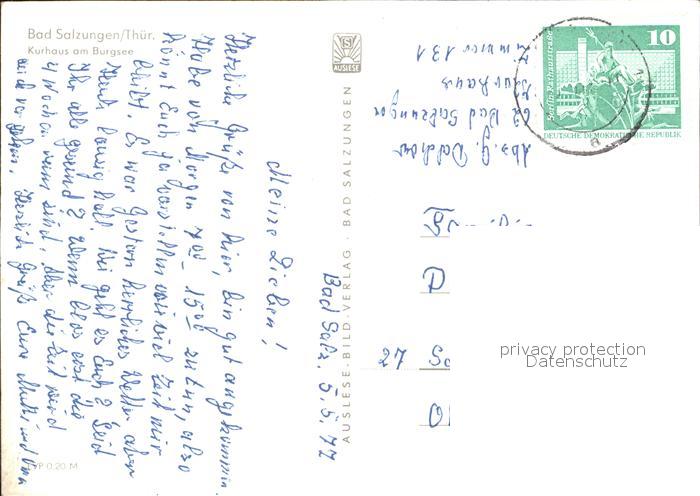 Bad Salzungen/Thür.
Kurhaus am Burgsee
Bad Salz. 5.5.77
Meine Lieben!
Herzliche Grüße von hier, bin gut angekommen.
Habe von Morgen 7 00 – 15 00 zutun, also
könnt Euch ja vorstellen wieviel Zeit mir
bleibt. Es war Gestern herrliches Wetter aber
Heute lausig kalt. Wie geht es Euch? Seid
Ihr alle gesund? Wenn blos erst die
4 Wochen rum sind. Aber die Zeit wird
auch vergehen. Herzliche Grüße Eure Mutti und Oma
TYP 0,20 M
AUSLESE
AUSLESE-BILD-VERLAG · BAD SALZUNGEN
Abs. G.
62 Bad Salzungen
Kurhaus
Zimmer 131
Berlin, Rathausstraße
10
DEUTSCHE DEMOKRATISCHE REPUBLIK
a
27
privacy protection
Datenschutz